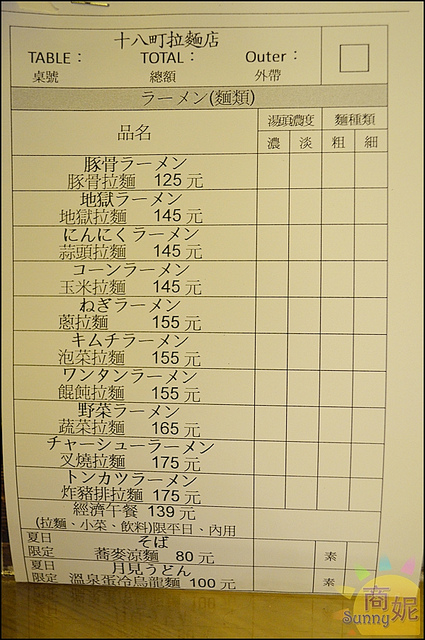 十八町拉麵店
TABLE： TOTAL： Outer：
桌號 總額 外帶
ラーメン(麵類)
品名 湯頭濃度 麵種類
濃 淡 粗 細
豚骨ラーメン
豚骨拉麵 125 元
地獄ラーメン
地獄拉麵 145 元
にんにくラーメン
蒜頭拉麵 145 元
コーンラーメン
玉米拉麵 145 元
ねぎラーメン
蔥拉麵 155 元
キムチラーメン
泡菜拉麵 155 元
ワンタンラーメン
餛飩拉麵 155 元
野菜ラーメン
蔬菜拉麵 165 元
チャーシューラーメン
叉燒拉麵 175 元
トンカツラーメン
炸豬排拉麵 175 元
經濟午餐 139 元
(拉麵、小菜、飲料)限平日、內用
夏日 そば
限定 蕎麥涼麵 80 元 素
夏日 月見うどん
限定 溫泉蛋冷烏龍麵 100 元 素
商妮
Sunny